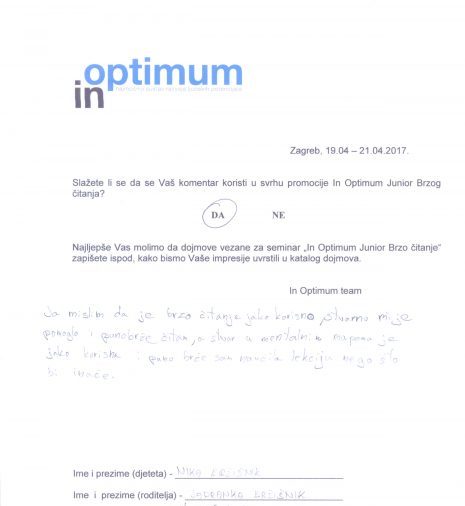 in optimum
Zagreb, 19.04 – 21.04.2017.
Slažete li se da se Vaš komentar koristi u svrhu promocije In Optimum Junior Brzog
čitanja?
DA NE
Najljepše Vas molimo da dojmove vezane za seminar „In Optimum Junior Brzo čitanje“
zapišete ispod, kako bismo Vaše impresije uvrstili u katalog dojmova.
In Optimum team
Ja mislim da je brzo čitanje jako korisno, stvarno mi je
pomoglo i puno brže čitam, a stvar u mentalnim mapama je
jako korisna i puno brže sam naučila lekciju nego što
bi inače.
Ime i prezime (djeteta) - NIKA
Ime i prezime (roditelja) -